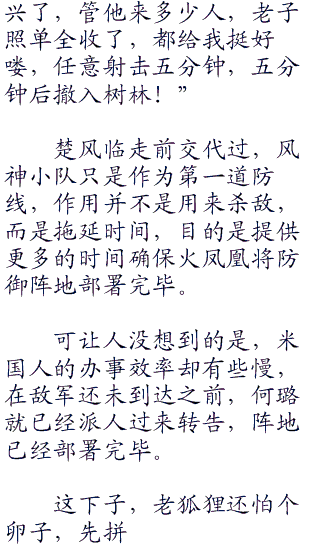 兴了，管他来多少人，老子
照单全收了，都给我挺好
喽，任意射击五分钟，五分
钟后撤入树林！”
楚风临走前交代过，风
神小队只是作为第一道防
线，作用并不是用来杀敌，
而是拖延时间，目的是提供
更多的时间确保火凤凰将防
御阵地部署完毕。
可让人没想到的是，米
国人的办事效率却有些慢，
在敌军还未到达之前，何璐
就已经派人过来转告，阵地
已经部署完毕。
这下子，老狐狸还怕个
卵子，先拼